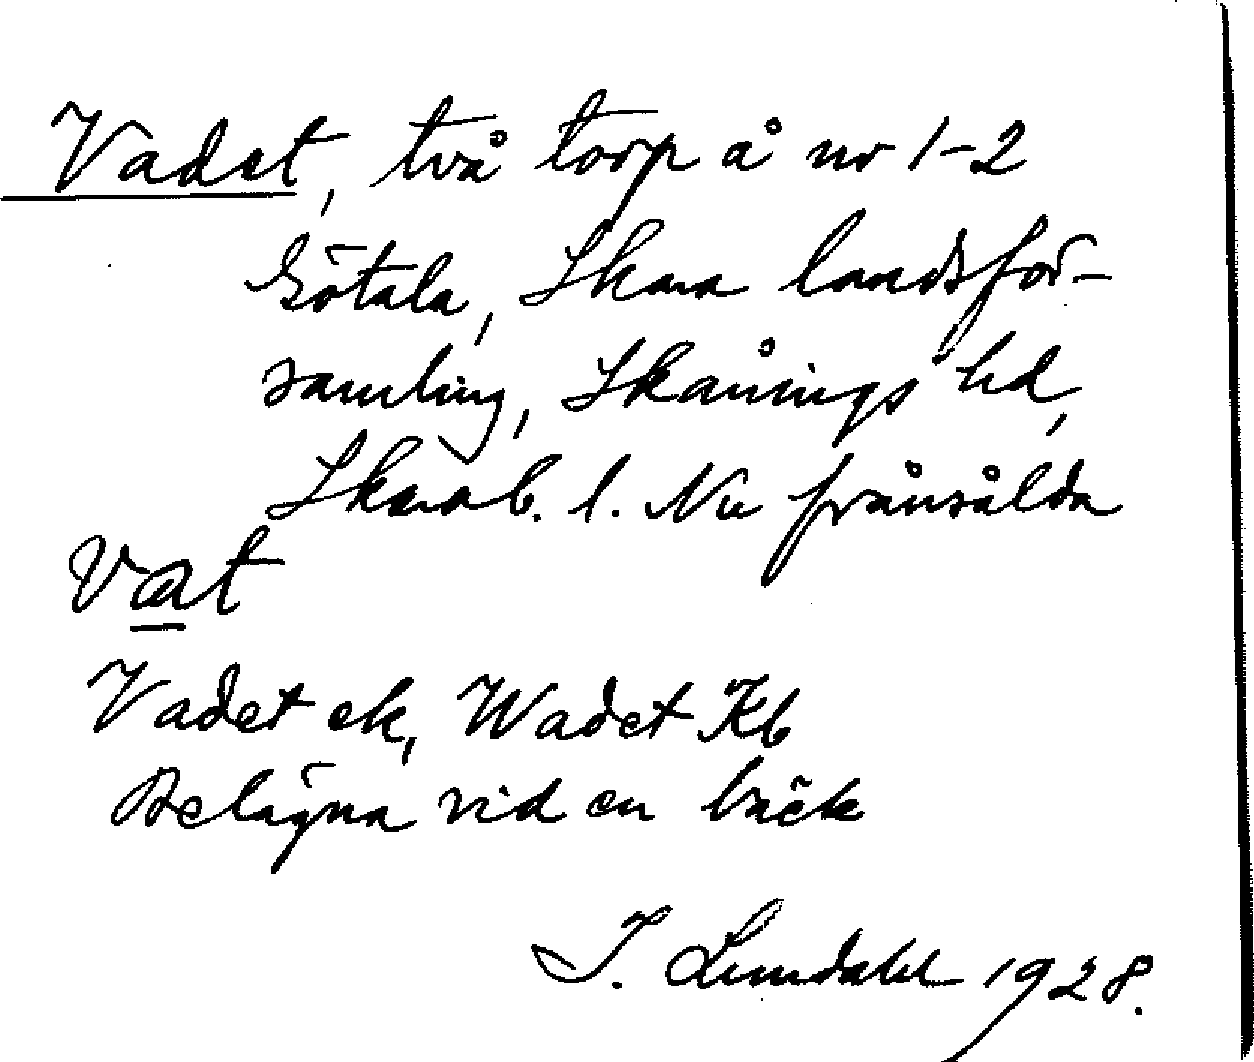 Vadet, två torp å nr 1-2
Götala, Skara landsför-
samling, Skånings hd,
Skarab. l. Nu frånsålda
vat
Vadet ek, Wadet Kb
Belägna vid en bäck
I. Lundahl 1928.